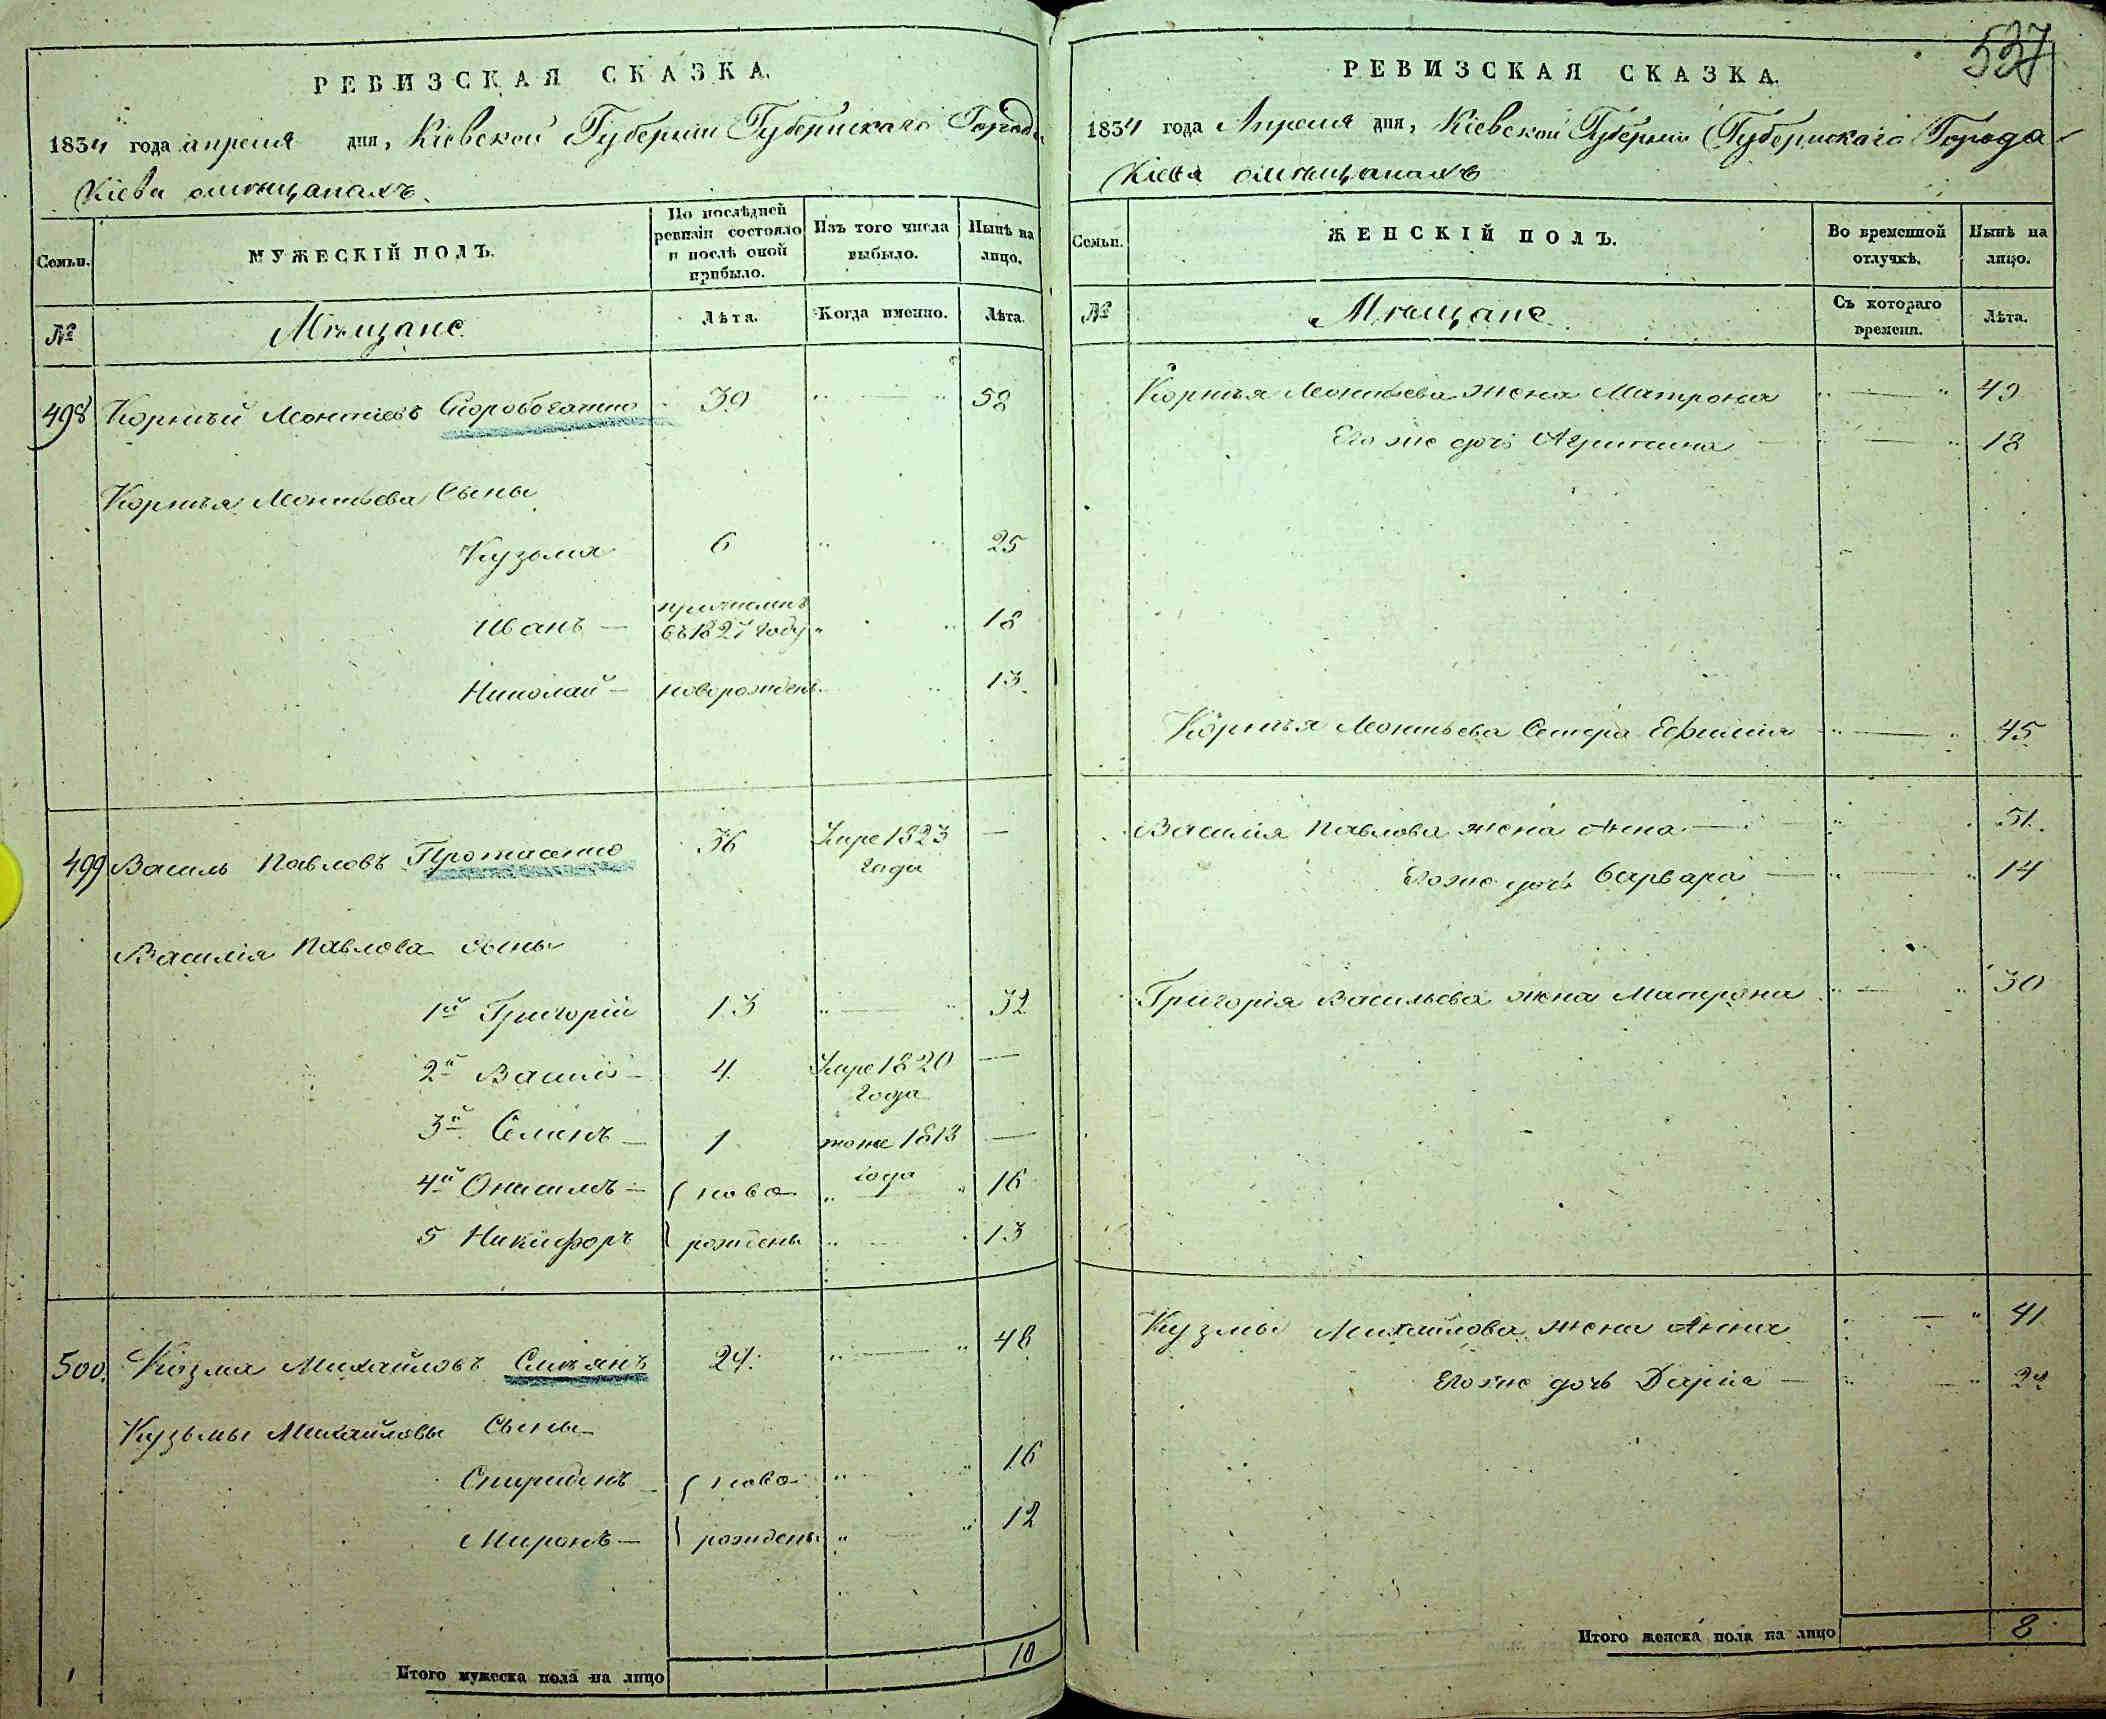 РЕВИЗСКАЯ СКАЗКА.
1834 года апреля дня, Кіевской Губерніи Губернскаго Города
Кіева омѣщанахъ.
Семьи. МУЖЕСКІЙ ПОЛЪ. По послѣдней ревизіи состояло и послѣ оной прибыло. Изъ того числа выбыло. Нынѣ на лицо.
№ Мѣщане Лѣта. Когда именно. Лѣта.
498 Корнѣй Леонтіевъ Скоробогатко 39 " " 58
Корнѣя Леонтьева Сыны
Кузьма 6 " " 25
Иванъ — причисленъ въ 1827 году " " 18
Николай — новорожденъ " 13.
499 Василь Павловъ Протасенко 36 Умре 1823 года —
Василія Павлова сыны
1й Григорій 13 " — " 32
2й Василій — 4. Умре 1820 года —
3й Семенъ — 1 тоже 1813 года —
4й Онисимъ — ново " — " 16
5 Никифоръ рождены " — " 13
500. Козма Михайловъ Слипянъ 24. " — " 48
Кузьмы Михайловы Сыны
Спиридонъ — ново " " 16
Миронъ — рождены " — " 12
Итого мужеска пола на лицо 10
537
РЕВИЗСКАЯ СКАЗКА.
1834 года Апреля дня, Кіевской Губерніи Губернскаго Города
Кіева омѣщанахъ
Семьи. ЖЕНСКІЙ ПОЛЪ. Во временной отлучкѣ. Нынѣ на лицо.
№ Мѣщане Съ котораго времени. Лѣта.
Корнѣя Леонтьева жена Матрона " — " 49
Его же дочь Агрипина — " — " 18
Корнѣя Леонтьева Сестра Ефимія " — " 45
Василія Павлова жена Анна — " — " 51.
Его же дочь варвара — " — " 14
Григорія Васильева жена Матрона " — " 30
Кузмы Михайлова жена Анна " — " 41
Его же дочь Дарія — " — "
Итого женска пола на лицо 8